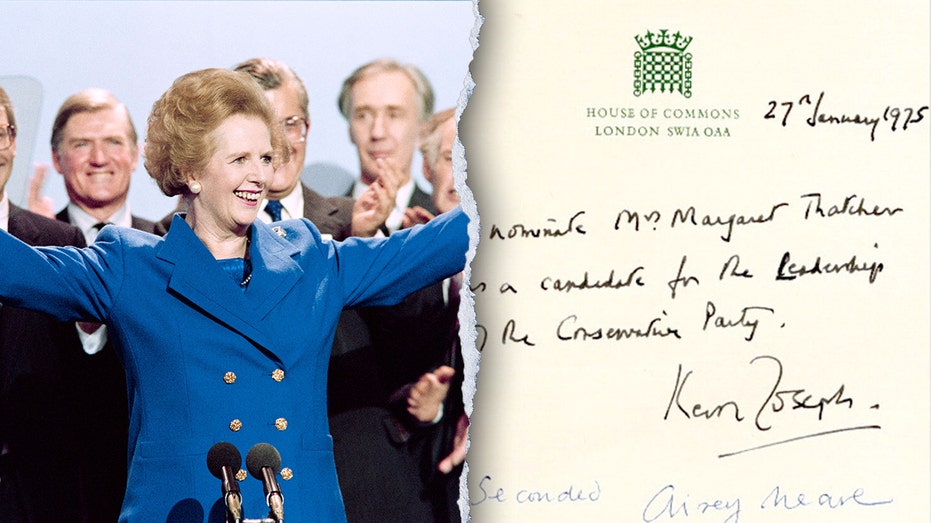 HOUSE OF COMMONS
LONDON SW1A 0AA
27th January 1975
nominate Mrs Margaret Thatcher
s a candidate for the Leadership
the Conservative Party.
Keith Joseph.
Seconded Airey Neave